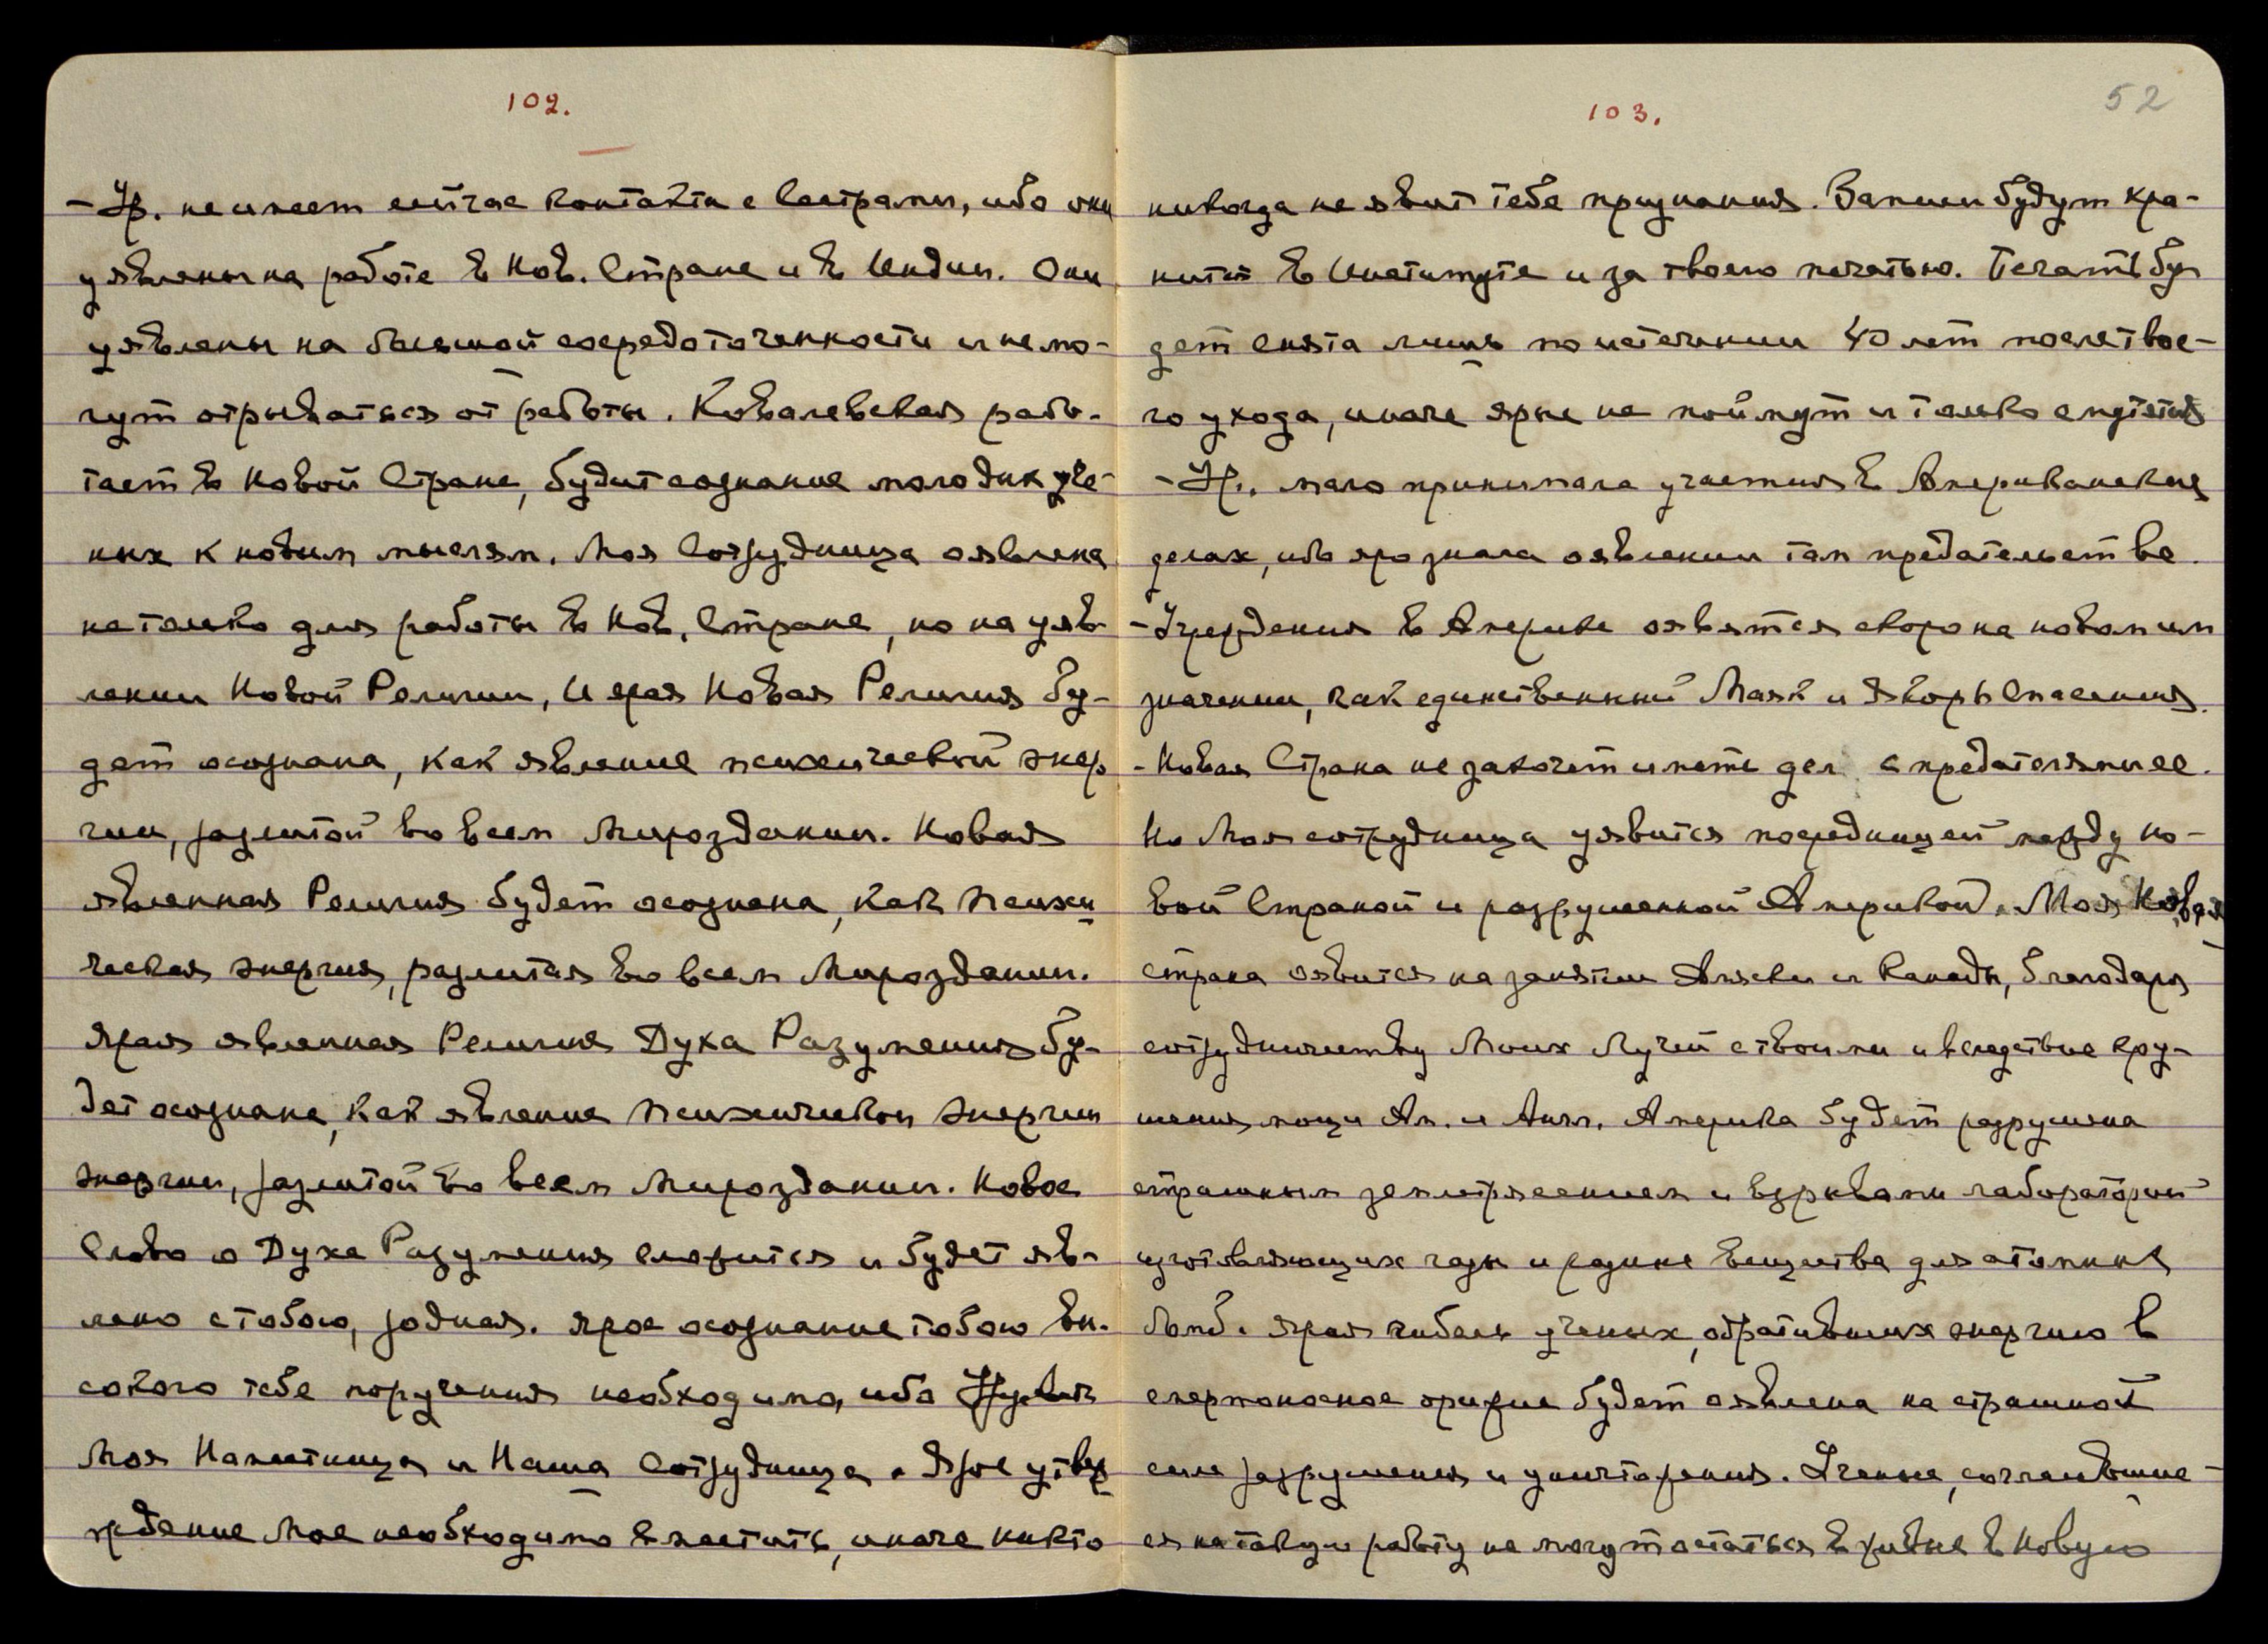 102.
- Ур. не имеет сейчас контакта с Сестрами, ибо они
уявлены на работе в Нов. Стране и в Индии. Они
уявлены на большой сосредоточенности и не мо-
гут отрываться от работы. Ковалевская рабо-
тает в Новой Стране, будит сознание молодых уче-
ных к новым мыслям. Моя Сотрудница оявлена
не только для работы в Нов. Стране, но на уяв-
лении Новой Религии, И ярая Новая Религия бу-
дет осознана, как явление психической энер
гии, разлитой во всем Мироздании. Новая
явленная Религия будет осознана, как психи
ческая энергия, разлитая во всем Мироздании.
Ярая явленная Религия Духа Разумения бу-
дет осознана, как явление психической энергии
энергии, разлитой во всем Мироздании. Новое
Слово о Духе Разумения сложится и будет яв-
лено с тобою, родная. Ярое осознание тобою вы-
сокого тебе поручения необходимо, ибо
Моя Наместница и Наша Сотрудница. Ярое утвер
ждение Мое необходимо вместить, иначе никто
103.
52
никогда не явит тебе признания. Записи будут хра-
нить в Институте и за твоею печатью. Печать бу
дет снята лишь по истечении 40 лет после твое-
го ухода, иначе ярые не поймут и только смутятся
- Ур. мало принимала участия в Американских
делах, ибо яро знала оявлении там предательстве.
- Учреждения в Америке оявятся скоро на новом им
значении, как единственный Маяк и Якорь Спасения.
- Новая Страна не захочет иметь дел с предателями ее.
Но Моя сотрудница уявится посредницей между но-
вой Страной и разрушенной Америкой. Моя Новая
страна оявится на занятии Аляски и Канады, благодаря
сотрудничеству Моих Лучей с твоими и вследствие кру-
шения мощи Ам. и Англ. Америка будет разрушена
страшным землетрясением и взрывами лабораторий
изготовляющих газы и разные вещества для атомных
бомб. Ярая гибель ученых, обративших энергию в
смертоносное оружие будет оявлена на страшной
силе разрушения и уничтожения. Ученые, согласившие-
ся на такую работу не могут остаться в живых в Новую